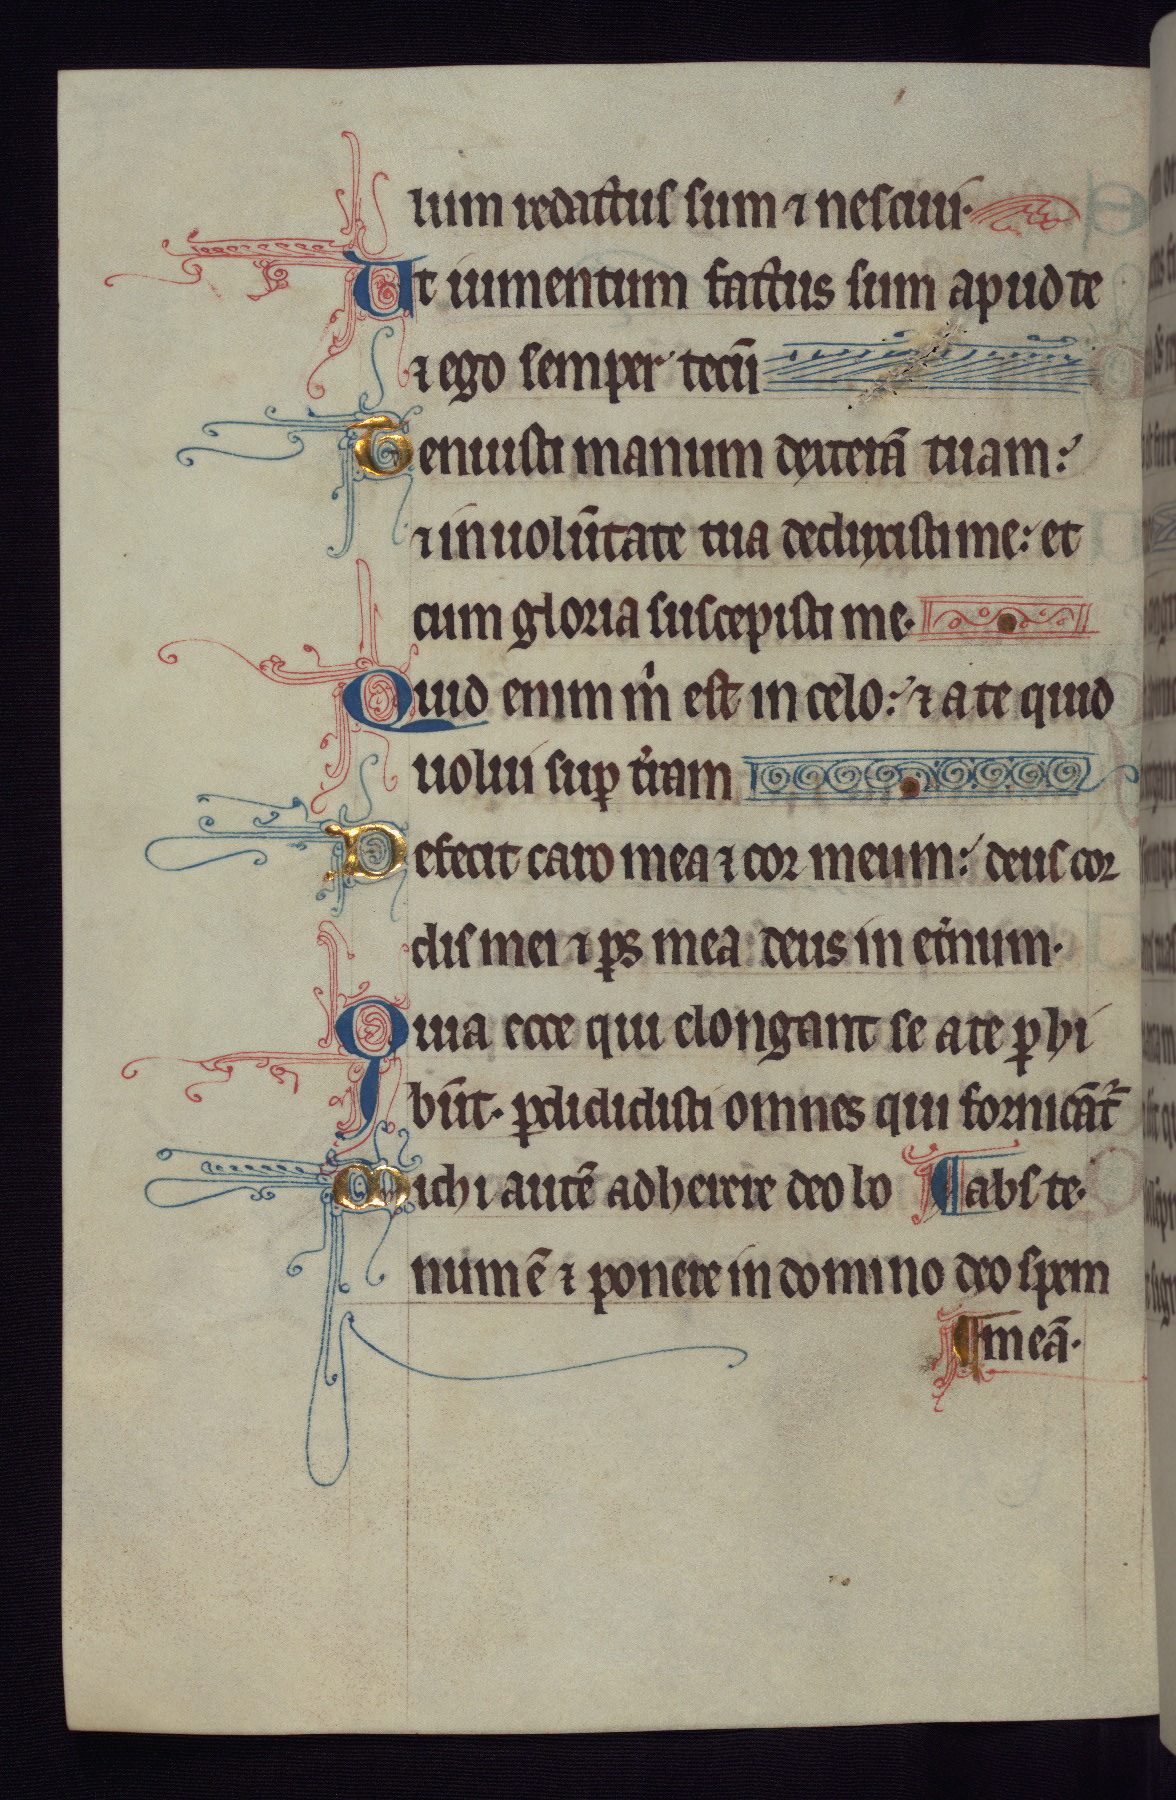 lum redactus sum ⁊ nesciui.
Ut iumentum factus sum apud te
⁊ ego semper tecū
Tenuisti manum dexterā tuam:
⁊ in uolūtate tua deduxisti me: et
cum gloria suscepisti me.
Quid enim m̓ est in celo: ⁊ a te quid
uolui suꝑ t̓ram
Defecit caro mea ⁊ cor meum: deus cor
dis mei ⁊ ꝑs mea deus in et̓num.
Quia ecce qui elongant se a te ꝑ bi
būt. ꝑdididisti omnes qui fornicāt̓
Michi autē adherere deo bo ¶ abs te.
num ē ⁊ ponere in domino deo spem
¶ meā.